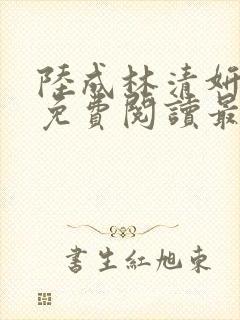 陸成林清妍
免費閱讀最
書生紅旭東